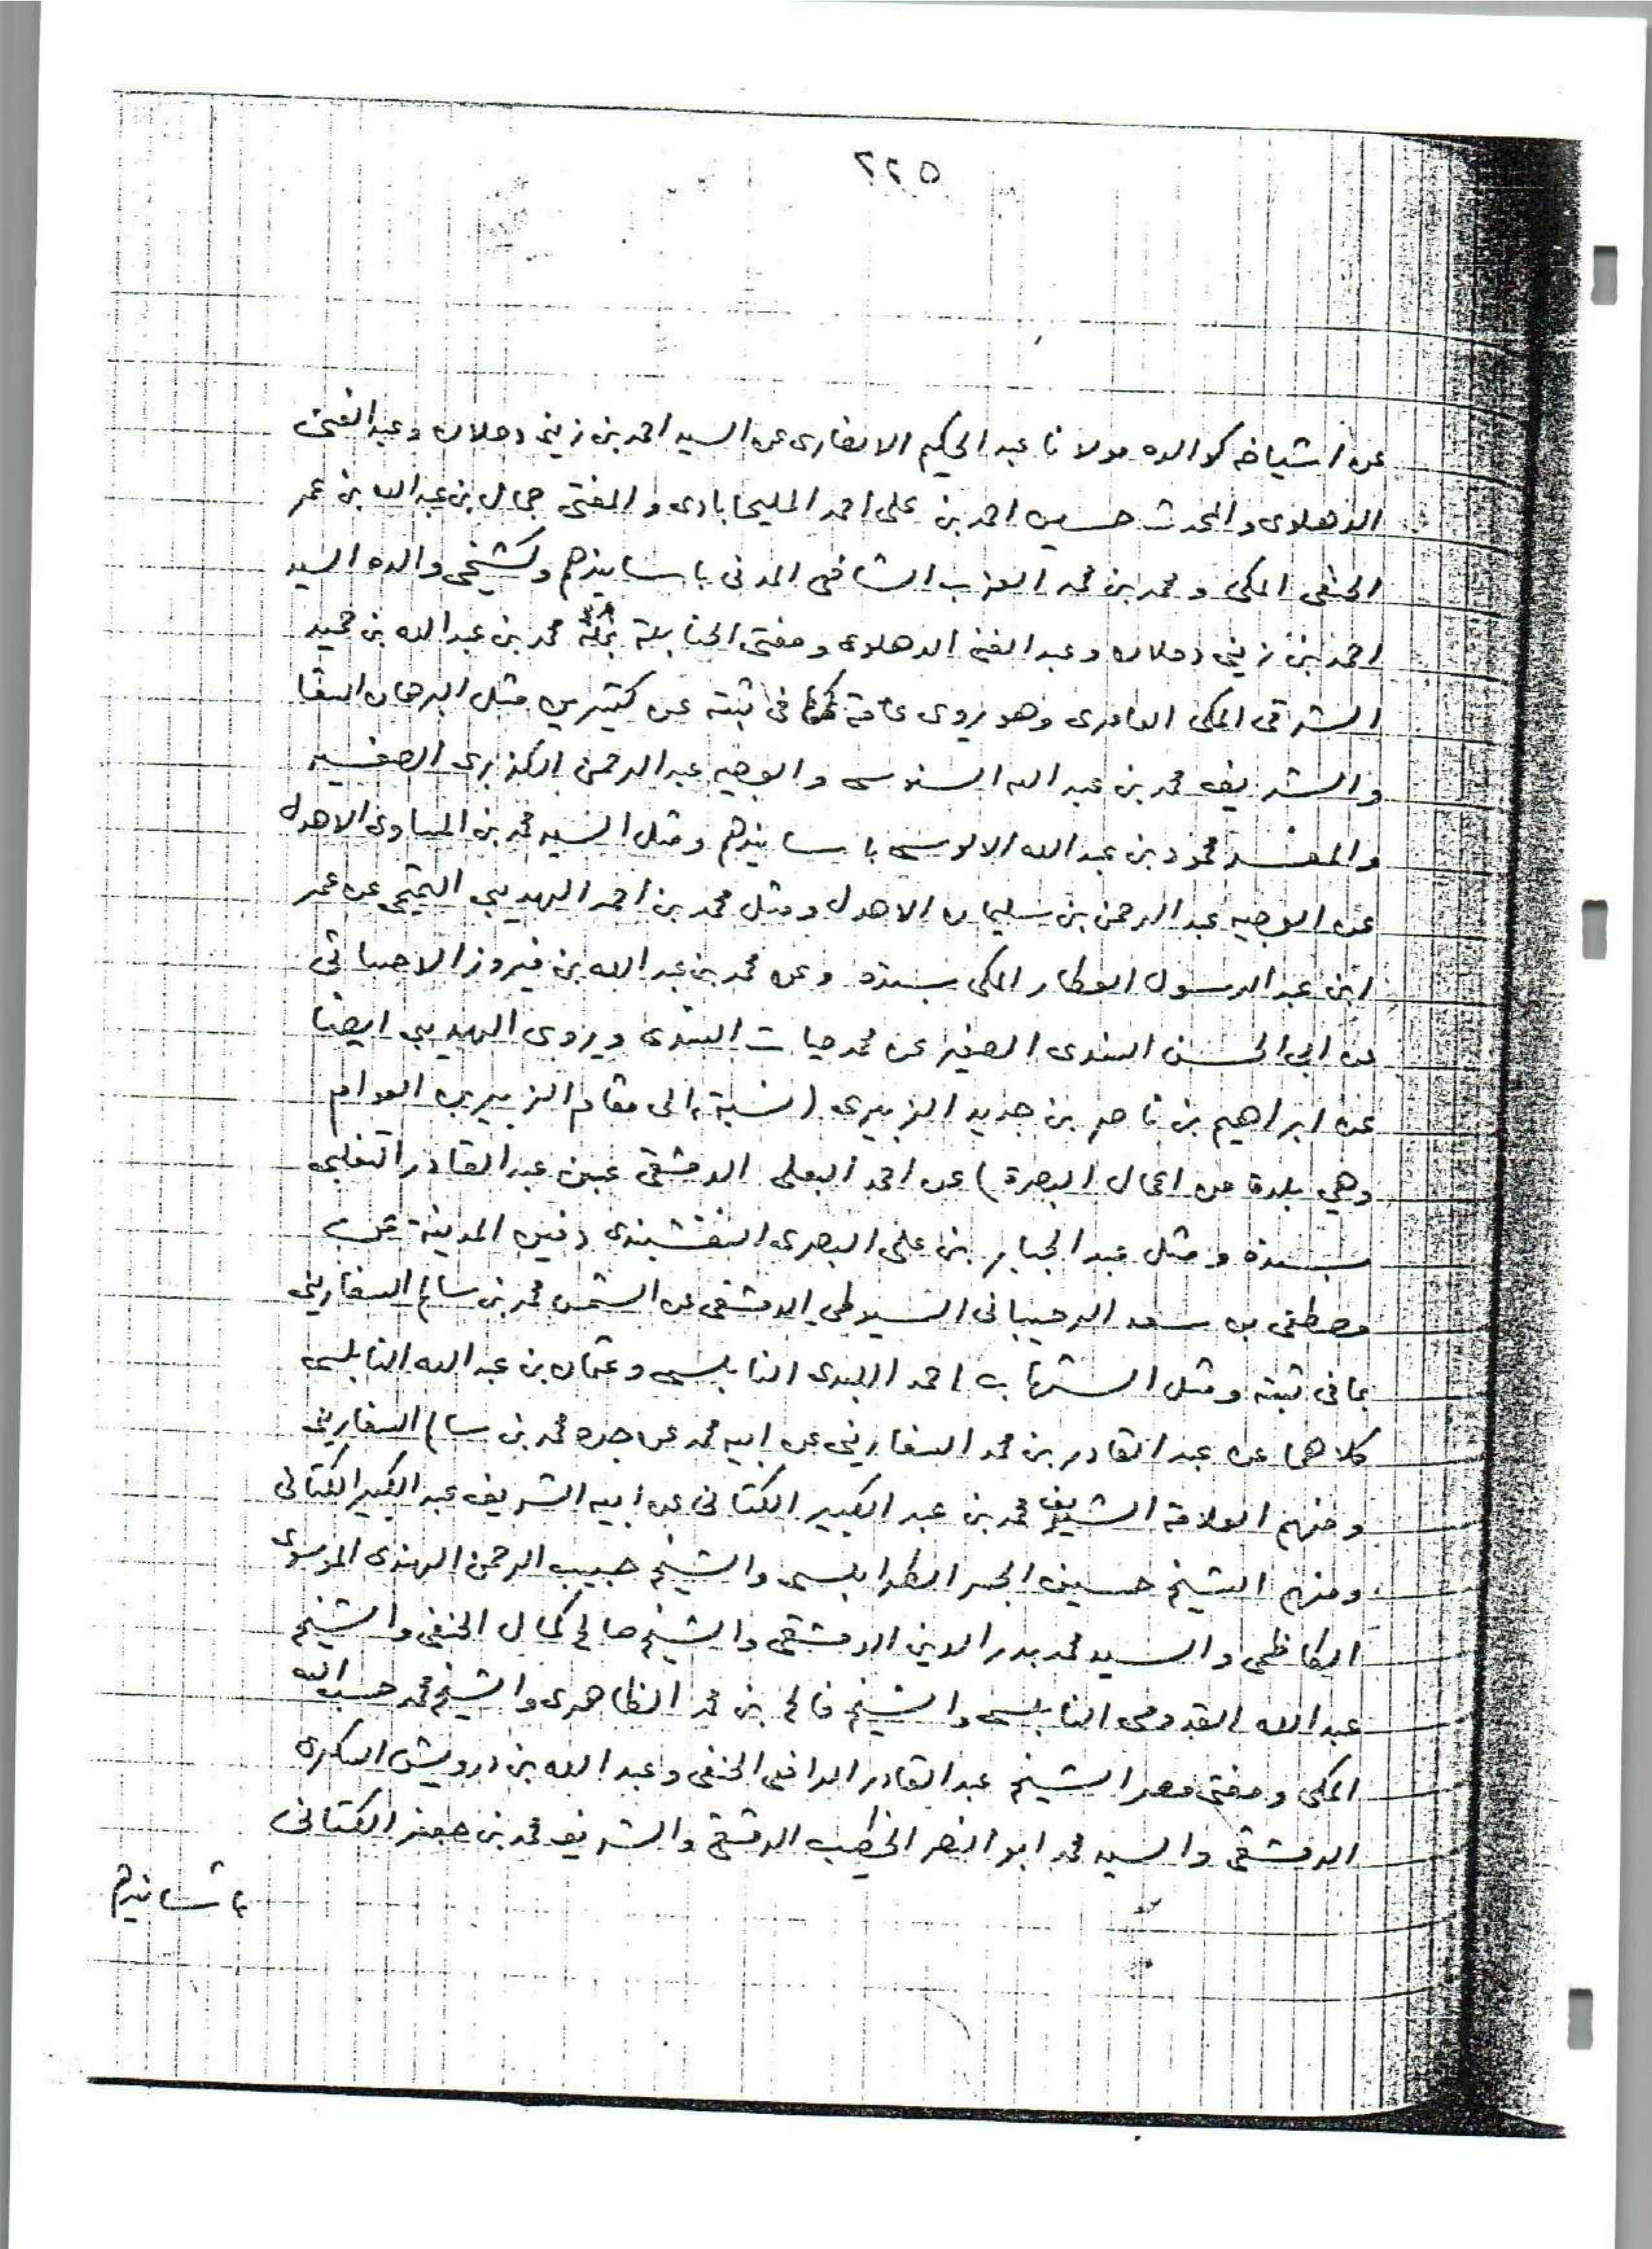 ٢٢٥
عن اشياخه كوالده مولانا عبد الحكيم الانصارى عن السيد احمد بن زينى دحلان وعبد الغنى
الدهلاوى والمحدث حسين احمد بن على احمد المليحابادى والمفتى جمال بن عبد الله بن عمر
الحنفى المكى ومحمد بن محمد العزب الشافعى المدنى باسانيدهم وكشيخى والده السيد
احمد بن زينى دحلان وعبد الغنى الدهلوى ومفتى الحنابلة بمكة محمد بن عبد الله بن حميد
الشرقى المكى العامرى وهو يروى عامة فى ثبته عن كثيرين مثل البرهان السقا
والشريف محمد بن عبد الله السنوسى والوجيه عبد الرحمن الكزبرى الصغير
والمفسر محمود بن عبد الله الالوسى باسانيدهم ومثل السيد محمد بن المساوى الاهدل
عن الوجيه عبد الرحمن بن سليمان الاهدل ومثل محمد بن احمد الهديبى التميمى عن عمر
ابن عبد الرسول العطار المكى بسنده وعن محمد بن عبد الله بن فيروز الاحسائى
عن ابى الحسن السندى الصغير عن محمد حيات السندى ويروى الهديبى ايضا
عن ابراهيم بن ناصر بن جديد الزبيرى (نسبة الى مقام الزبير بن العوام
وهي بلدة من اعمال البصرة) عن احمد البعلى الدمشقى عن عبد القادر التغلبى
بسنده ومثل عبد الجبار بن على البصرى النقشبندى دفين المدينة عن
مصطفى بن سعد الرحيبانى السيوطى الدمشقى عن الشمس محمد بن سالم السفارينى
بما فى ثبته ومثل الشهاب احمد اللبدى النابلسى وعثمان بن عبد الله النابلسى
كلاهما عن عبد القادر بن محمد السفارينى عن ابيه محمد عن جده محمد بن سالم السفارينى
ومنهم العلامة الشريف محمد بن عبد الكبير الكتانى عن ابيه الشريف عبد الكبير الكتانى
ومنهم الشيخ حسين الجسر الطرابلسى والشيخ حبيب الرحمن الهندى الموسوى
الكاظمى والسيد محمد بدر الدين الدمشقى والشيخ صالح كمال الحنفى والشيخ
عبد الله القدومى النابلسى والشيخ فالح بن محمد الظاهرى والشيخ محمد حسب الله
المكى ومفتى مصر الشيخ عبد القادر الرافعى الحنفى وعبد الله بن درويش السكرى
الدمشقى والسيد محمد ابو النصر الخطيب الدمشقى والشريف محمد بن جعفر الكتانى
باسانيدهم